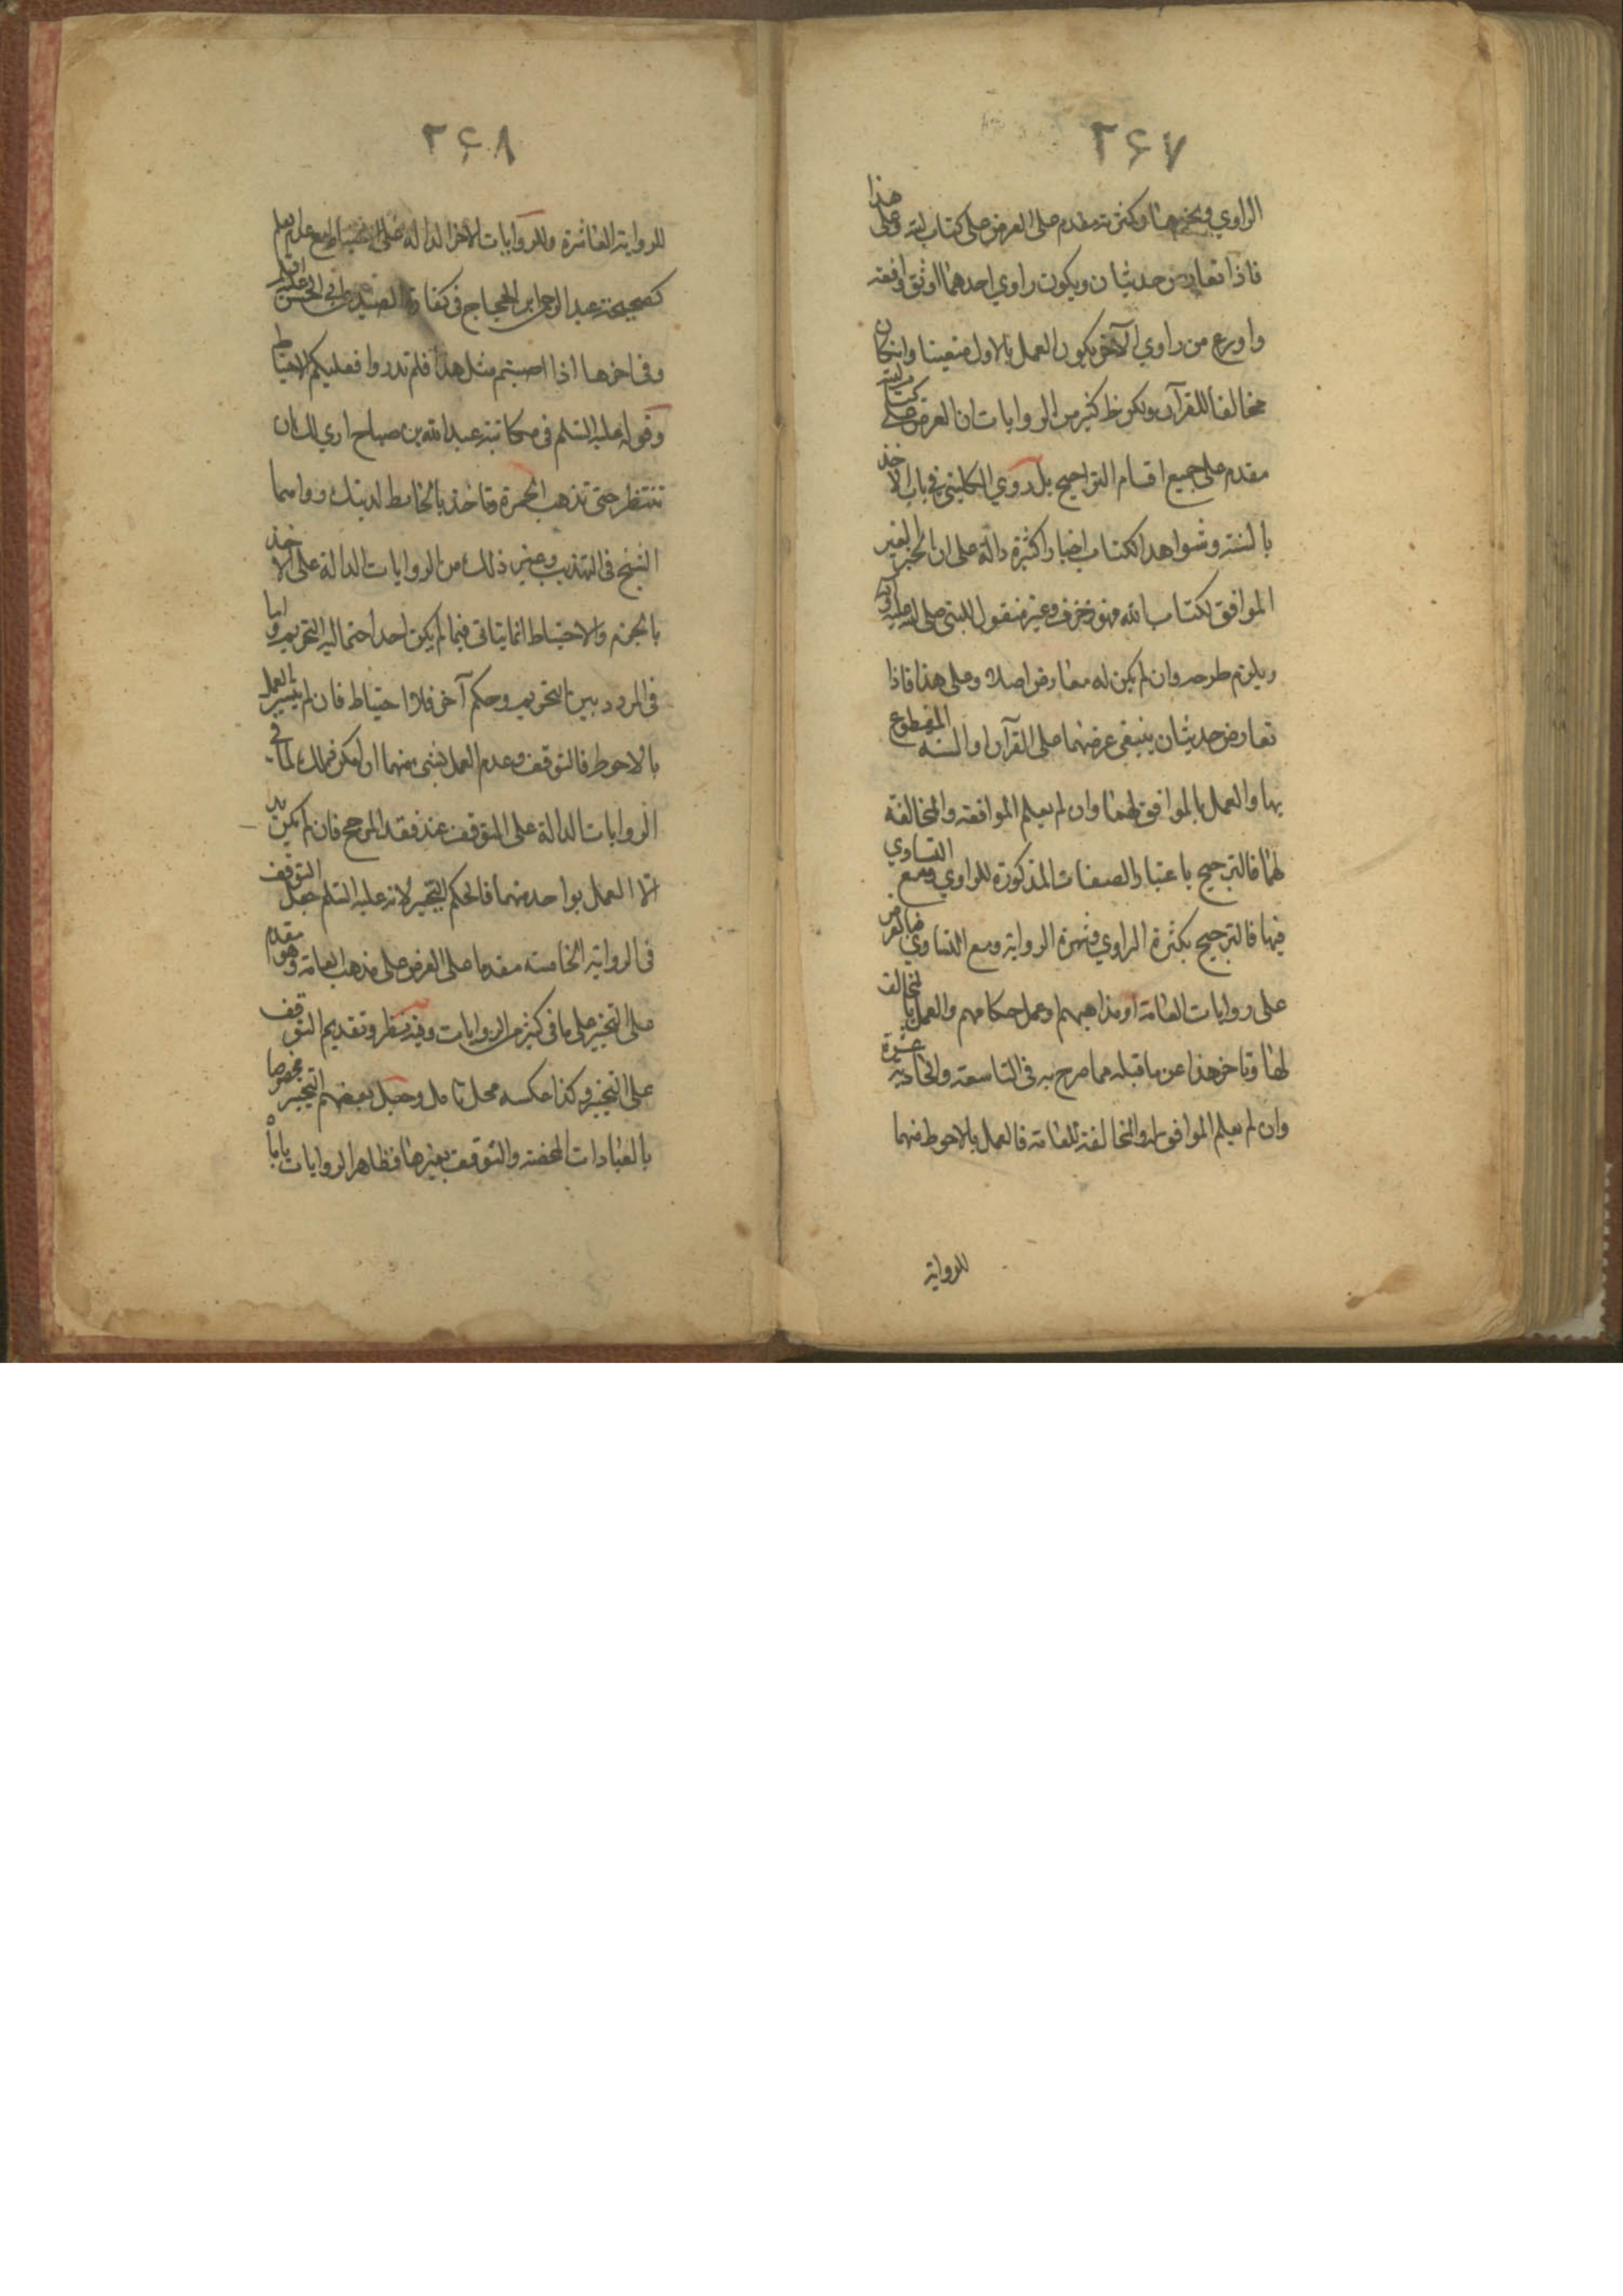 ۲۶۷
الراوي ونحوها وكثرته مقدم على العرض على كتاب الله وعلى هذا
فاذا تعارض حديثان ويكون راوي احدهما اوثق وافقه
واورع من راوي الآخر يكون العمل بالاول متعينا وان كان
مخالفا للقرآن ولكن ظ كثير من الروايات ان العرض على كتاب الله
مقدم على جميع اقسام التراجيح بل روي الكليني في باب الاخذ
بالسنة وشواهد الكتاب اخبارا كثيرة دالة على ان الخبر الغير
الموافق لكتاب الله فهو زخرف وغير منقول للنبي صلى الله عليه وآله
ويلزم طرحه وان لم يكن له معارض اصلا وعلى هذا فاذا
تعارض حديثان ينبغي عرضهما على القرآن او السنة المقطوع
بها والعمل بالموافق لهما وان لم يعلم الموافقة والمخالفة
لهما فالترجيح باعتبار الصفات المذكورة للراوي ومع التساوي
فيها فالترجيح بكثرة الراوي وشهرة الرواية ومع التساوي فبالعرض
على روايات العامة او مذاهبهم او عمل حكامهم والعمل بالمخالف
لها وتاخر هذا عن ما قبله مما صرح به في التاسعة والحادية عشرة
وان لم يعلم الموافق او المخالفة للعامة فالعمل بالاحوط منهما
للرواية
۲۶۸
للرواية العاشرة وللروايات الاخر الدالة على الاحتياط مع عدم العلم
كصحيحة عبد الرحمن ابن الحجاج في كفارة الصيد عن ابي الحسن عليه السلم
وفي اخرها اذا اصبتم مثل هذا فلم تدروا فعليكم الاحتياط
وقوله عليه السلم في مكاتبة عبد الله بن صباح اري لك ان
تنتظر حتى تذهب الحمرة وتاخذ بالحائط لدينك رواهما
الشيخ في التهذيب وغير ذلك من الروايات الدالة على الاخذ
بالجزم والاحتياط انما يتاتى فيما لم يكن احد احتماليه التحريم واما
في المردد بين التحريم وحكم آخر فلا احتياط فان لم يتيسر العمل
بالاحوط فالتوقف وعدم العمل بشئ منهما ان امكن ذلك لما في
الروايات الدالة على التوقف عند فقد المرجح فان لم يكن بد
الا العمل بواحد منهما فالحكم التخيير لانه عليه السلم جعل التوقف
في الرواية الخامسة مقدما على العرض على مذهب العامة وهو مقدم
على التخيير على ما في كثير من الروايات وفيه نظر وتقديم التوقف
على التخيير وكذا عكسه محل تامل وجعل بعضهم التخيير مخصوصا
بالعبادات المحضة والتوقف بغيرها وظاهر الروايات ياباه